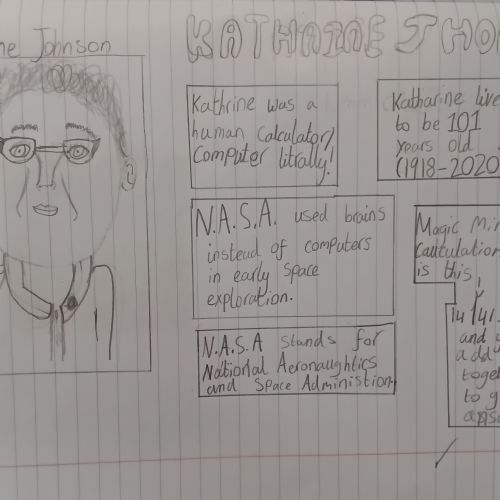 ne Johnson
KATHRINE JHO
Kathrine was a
human Calculator/
Computer litrally!
Katharine live
to be 101
years old
(1918-2020
N.A.S.A. used brains
instead of computers
in early space
exploration.
Magic Mir
Caulculation
is this,
N.A.S.A stands for
National Aeronaughtics
and Space Administion
14 141
and y
add
toget
to g